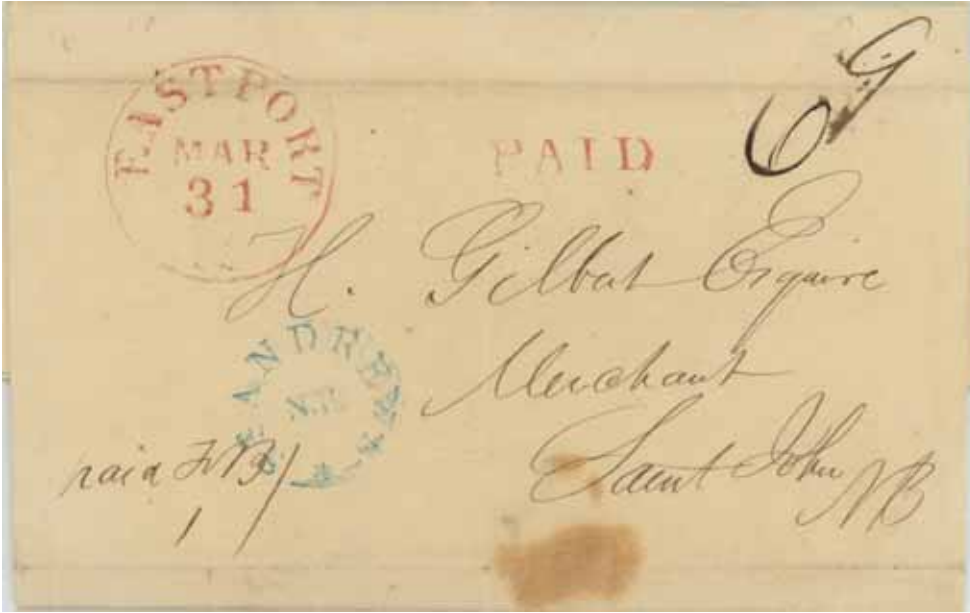 EASTPORT
MAR
31
PAID
6
H. Gilbert Esquire
Merchant
Saint John
NB
ANDREWS
N.B.
paid
1